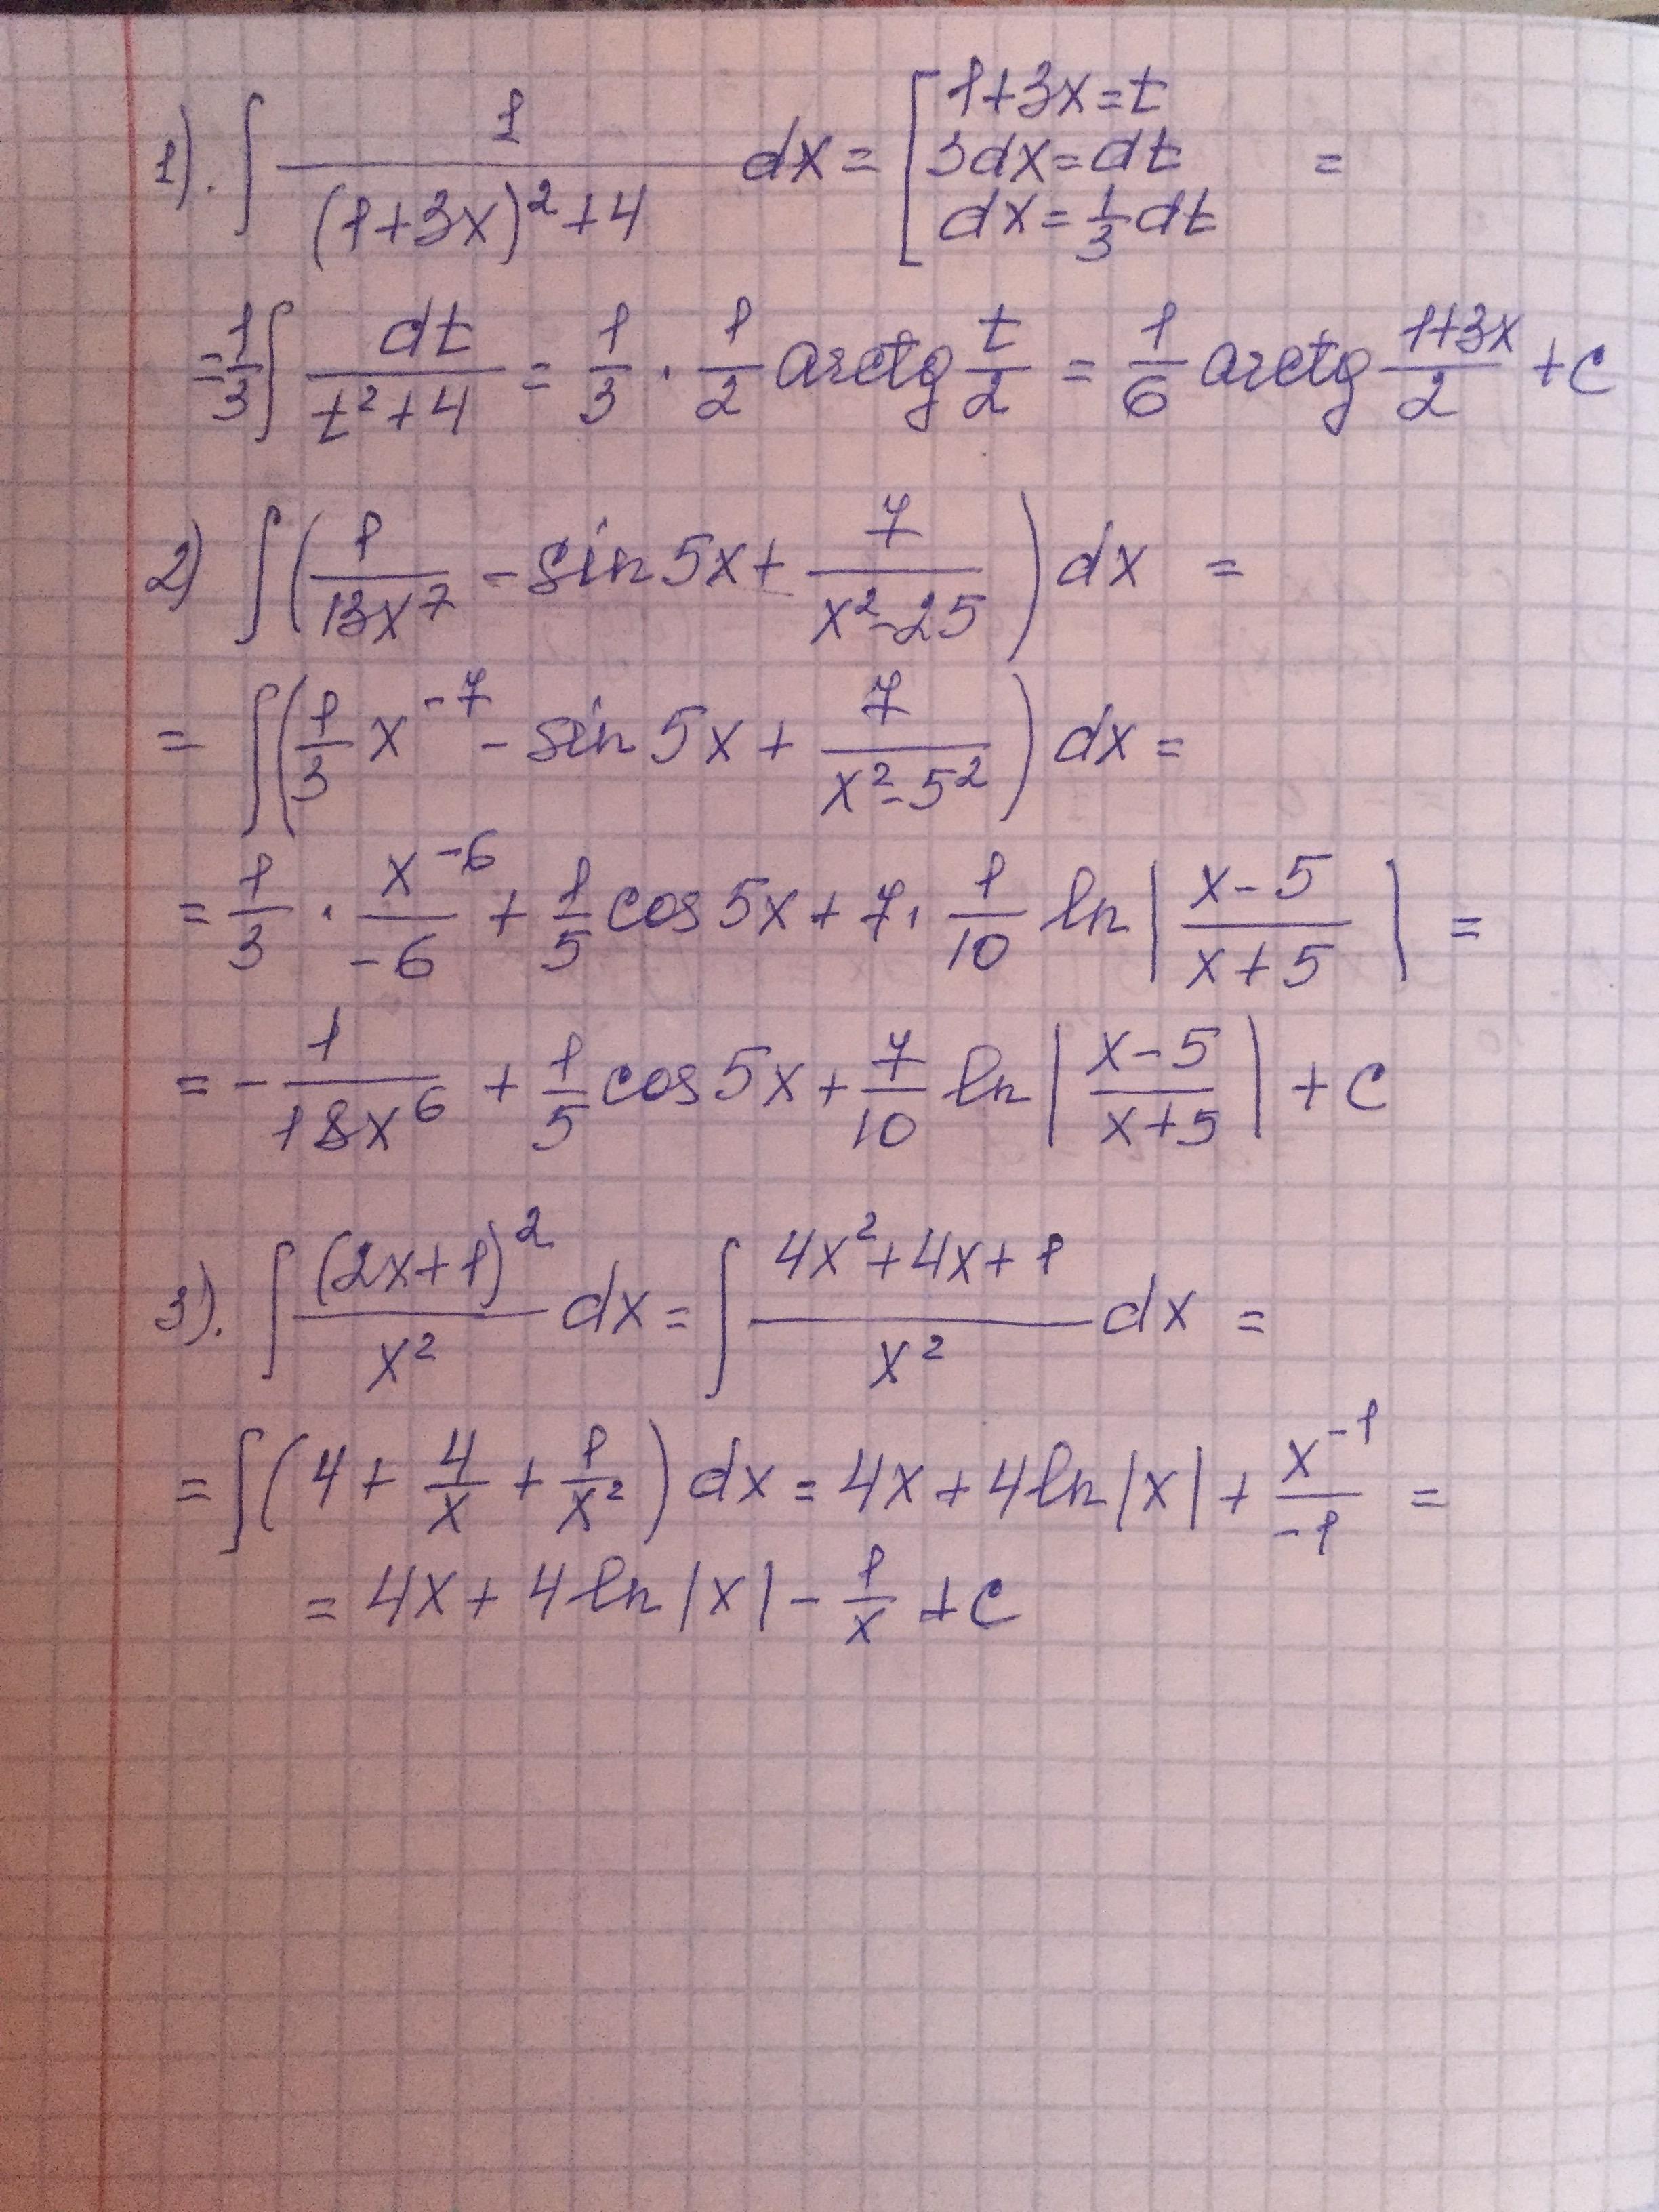 1). ∫ 1/((1+3x)²+4) dx = [1+3x=t
3dx=dt =
dx=1/3 dt
=1/3 ∫ dt/(t²+4) = 1/3 · 1/2 arctg t/2 = 1/6 arctg (1+3x)/2 + C
2) ∫(1/(13x⁷) - sin 5x + 7/(x²-25)) dx =
= ∫(1/3 x⁻⁷ - sin 5x + 7/(x²-5²)) dx =
= 1/3 · x⁻⁶/-6 + 1/5 cos 5x + 7 · 1/10 ln|(x-5)/(x+5)| =
= - 1/(18x⁶) + 1/5 cos 5x + 7/10 ln|(x-5)/(x+5)| + C
3). ∫ (2x+1)²/x² dx = ∫ (4x²+4x+1)/x² dx =
= ∫(4 + 4/x + 1/x²) dx = 4x + 4ln|x| + x⁻¹/-1 =
= 4x + 4ln|x| - 1/x + C